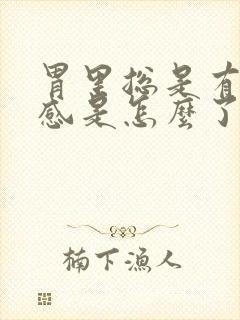 胃里总是有
感是怎麼了
楠下漁人